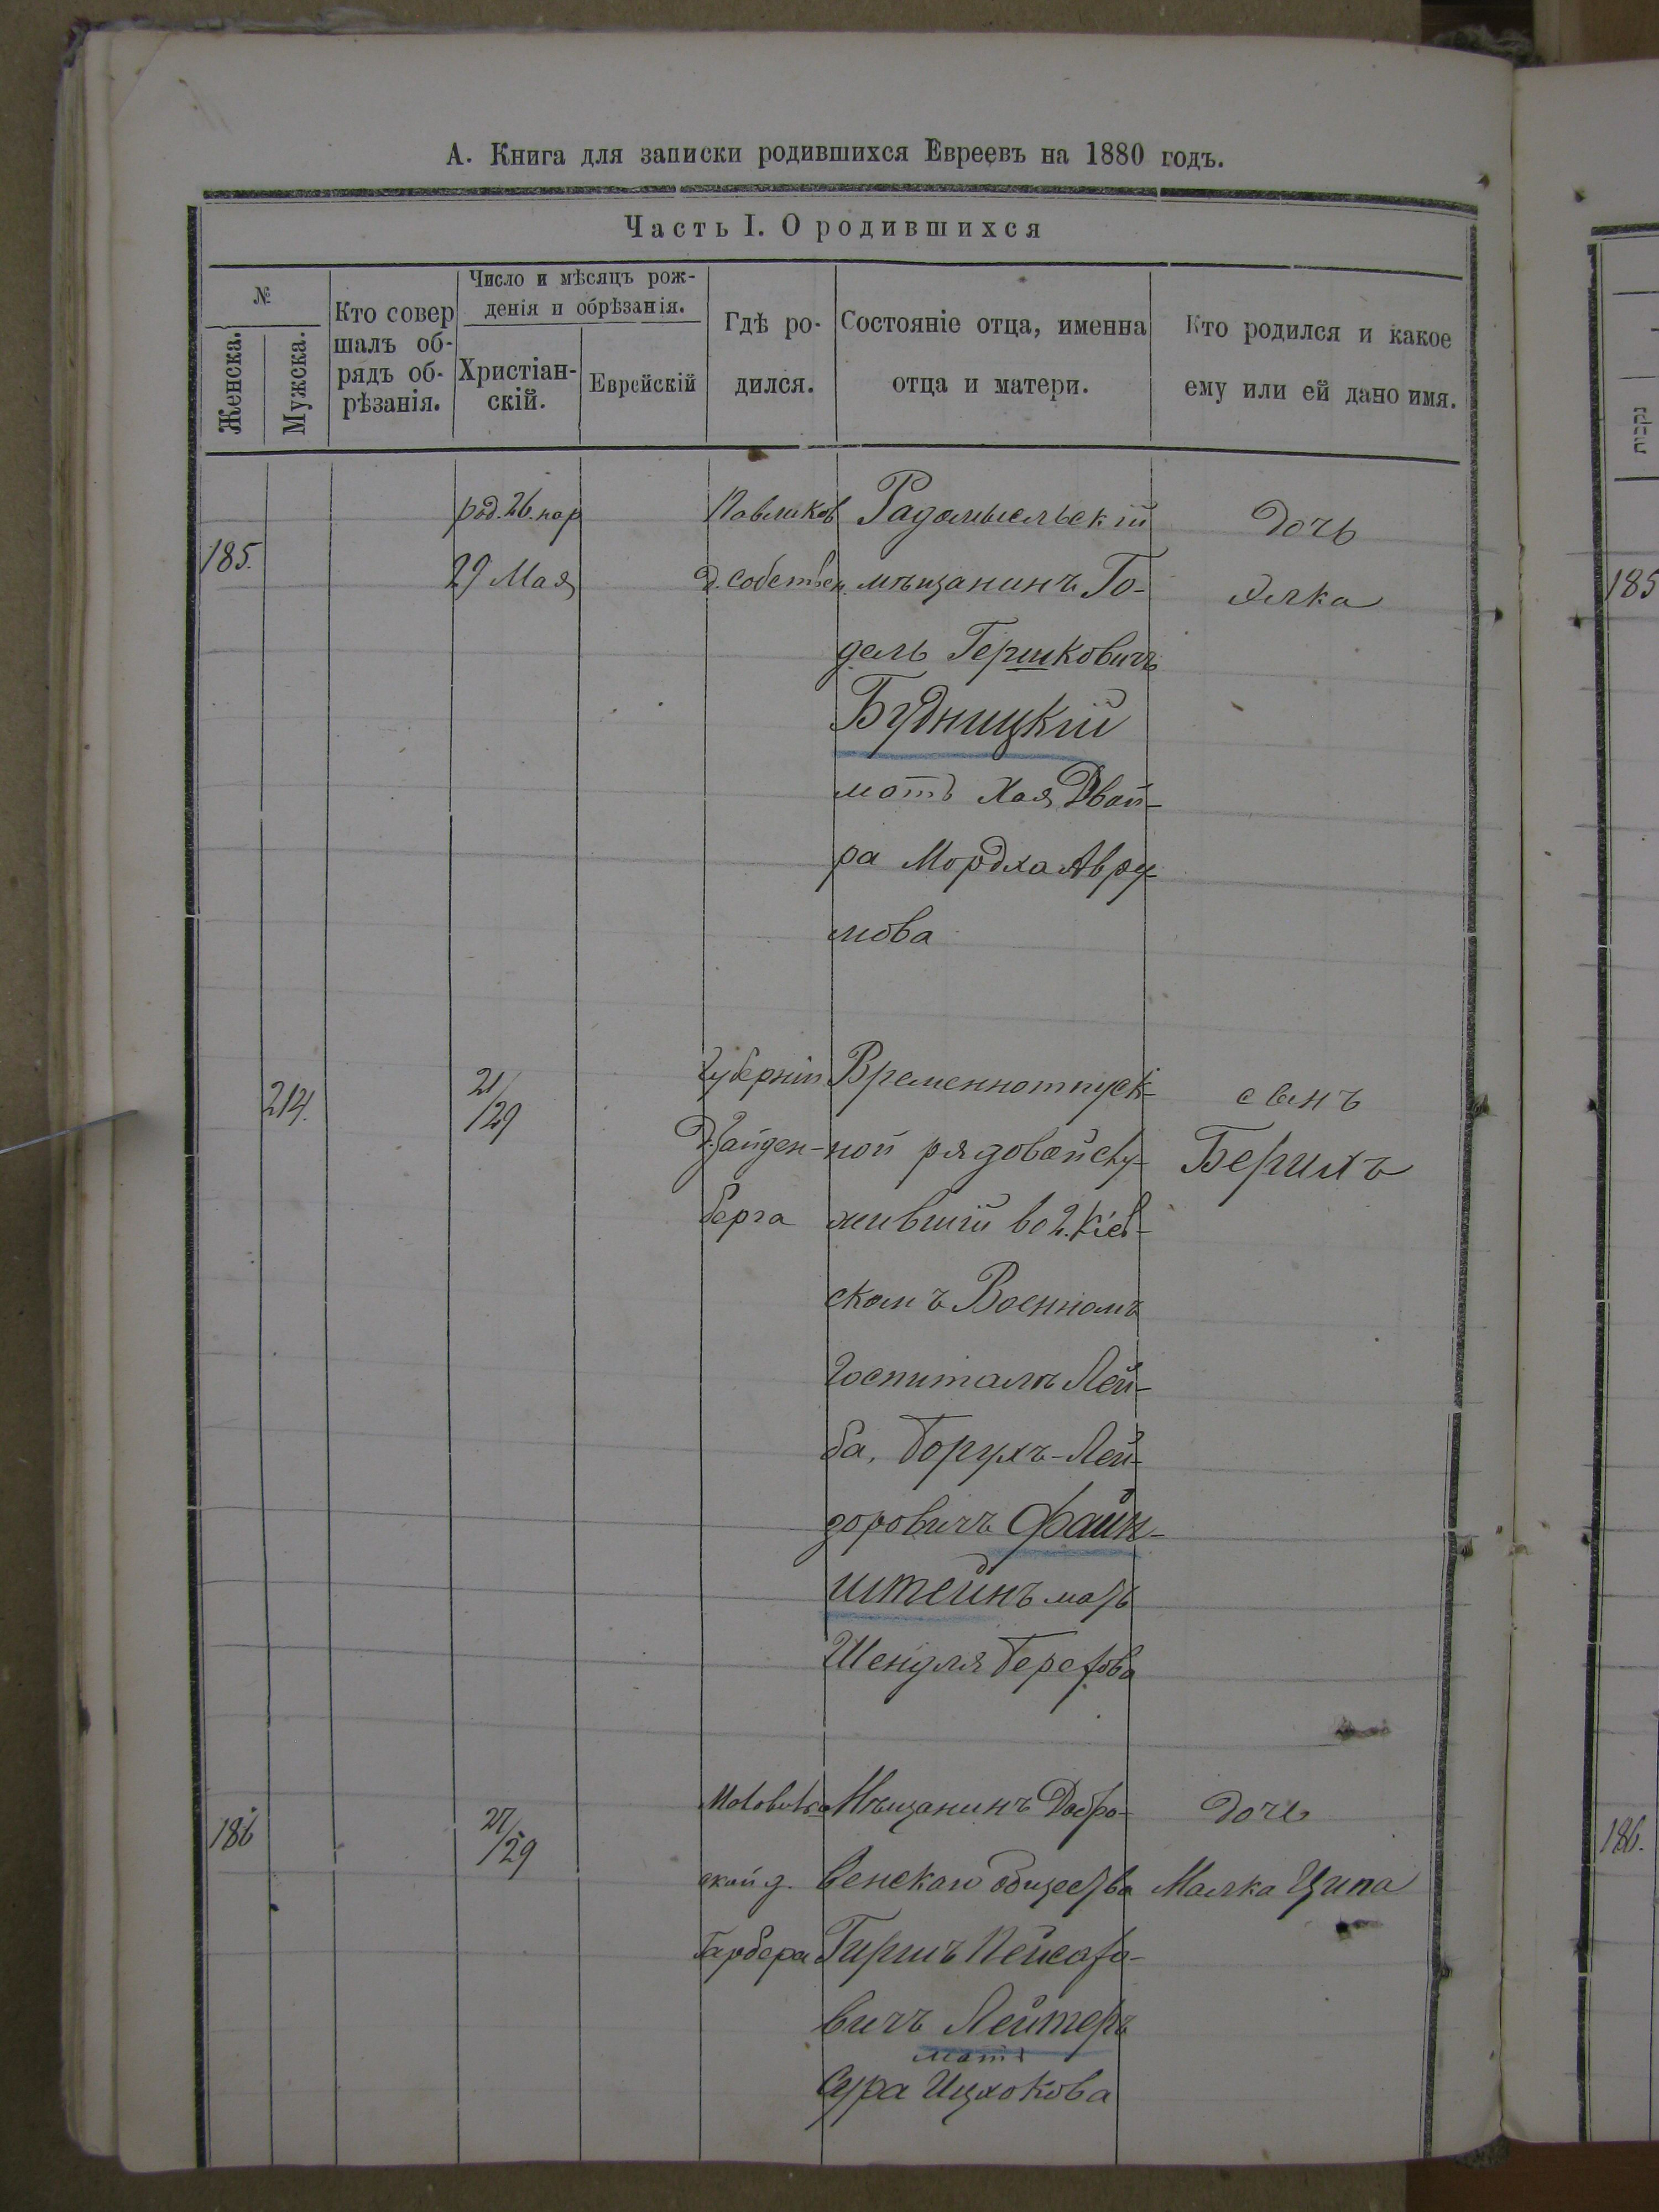 А. Книга для записки родившихся Евреевъ на 1880 годъ.
Часть I. О родившихся
№
Женска.
Мужска.
Кто совер
шалъ об-
рядъ об-
рѣзанія.
Число и мѣсяцъ рож-
денія и обрѣзанія.
Христіан-
скій.
Еврейскій
Гдѣ ро-
дился.
Состояніе отца, именна
отца и матери.
Кто родился и какое
ему или ей дано имя.
185.
род. 26. нар
29 Мая
д. собствен.
Радомысльскій
мѣщанинъ Го-
дель Гершковичъ
Будницкій
мать Хая Двой-
ра Мордха Авру-
мова
дочь
214.
21/29
губерніи
Д. Зайден-
берга
Временноотпуск-
ной рядовой слу-
жившій во 2. Кіев-
скомъ Военномъ
Госпиталѣ Лей-
ба, Борухъ-Лей-
зоровичъ Файн-
штейнъ мать
Шендля Беркова
сынъ
Берихъ
186
27/29
ской д.
Гарбера
Мѣщанинъ Добро-
венскаго общества
Гиршъ Пейсахо-
вичъ Лейтеръ
мать
Сура Ицхокова
дочь
Малка Ципа
נקבות
185
186.